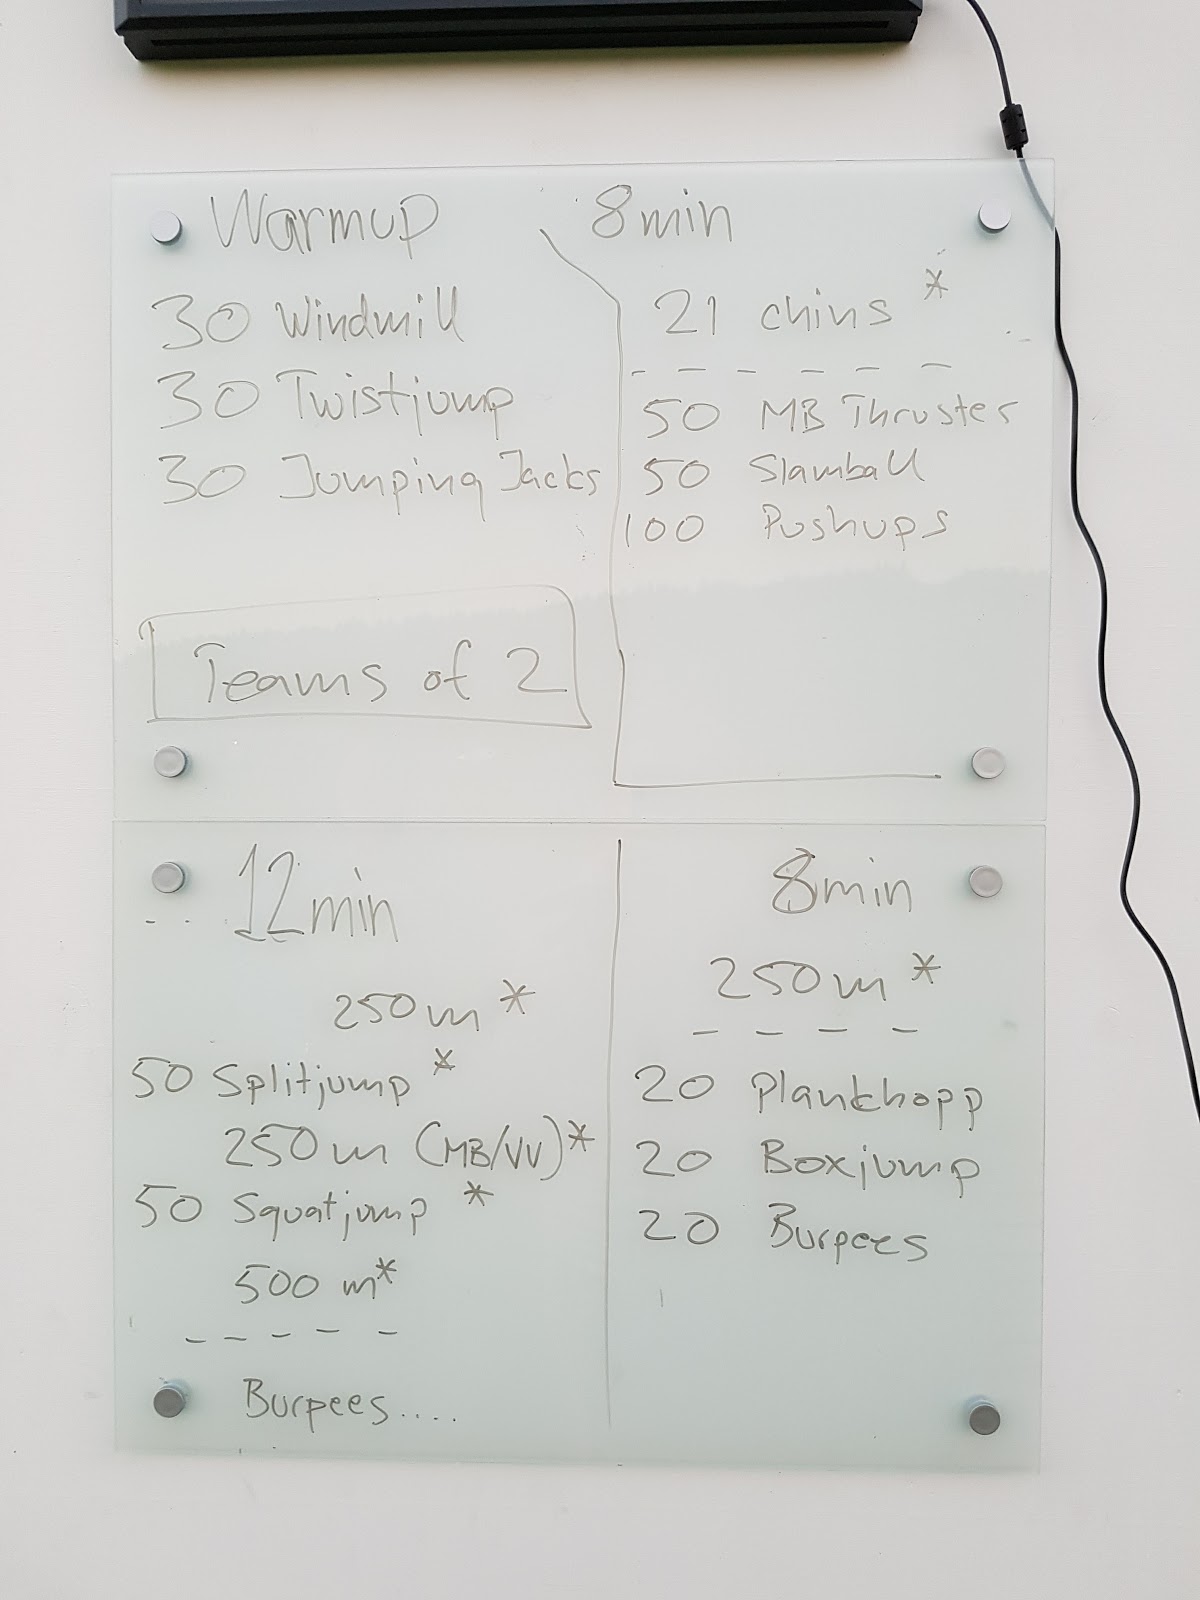 Warmup
30 Windmill
30 Twistjump
30 Jumping Jacks
Teams of 2
8min
21 chins *
- - - - - -
50 MB Thruster
50 Slamball
100 Pushups
12min
250m *
50 Splitjump *
250m (MB/VV)*
50 Squatjump *
500 m*
- - - - -
Burpees....
8min
250m *
- - - -
20 Plankhopp
20 Boxjump
20 Burpees